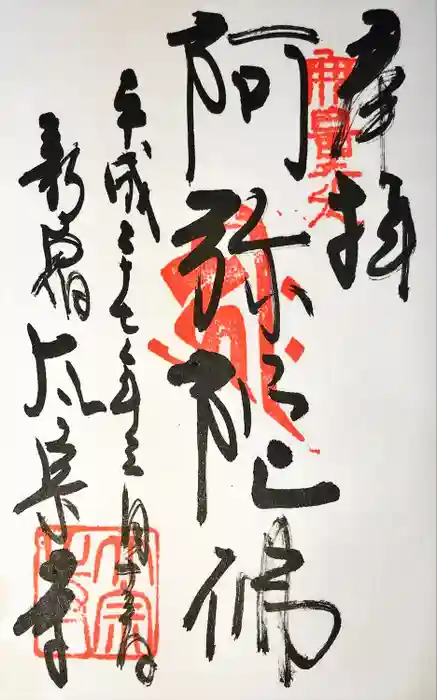 奉拝
無量光
阿弥陀佛
平成二十七年三月十三日
新宿 太宗寺